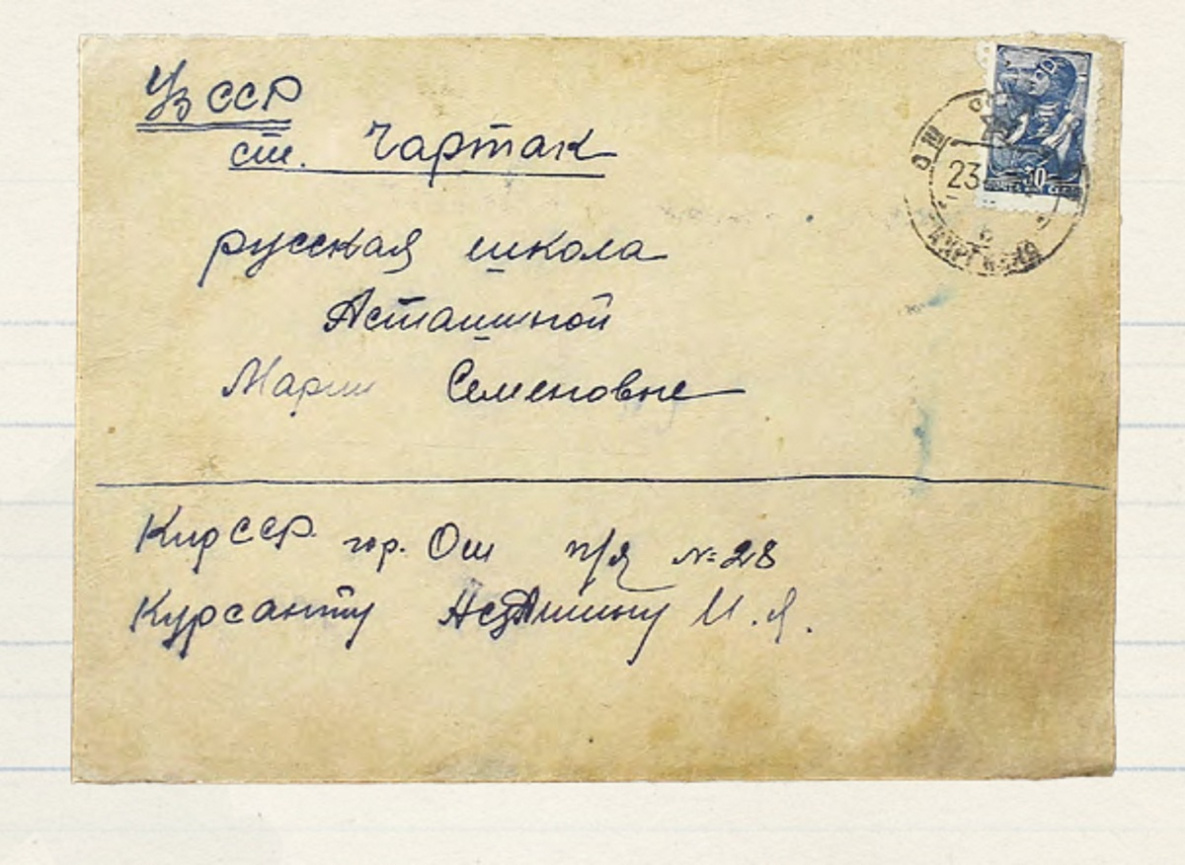 Уз ССР
ст. Чартак
русская школа
Асташиной
Марии Семеновне
ОШ
23
30
Кир ССР. гор. Ош п/я №28
Курсанту Асташину И. Я.